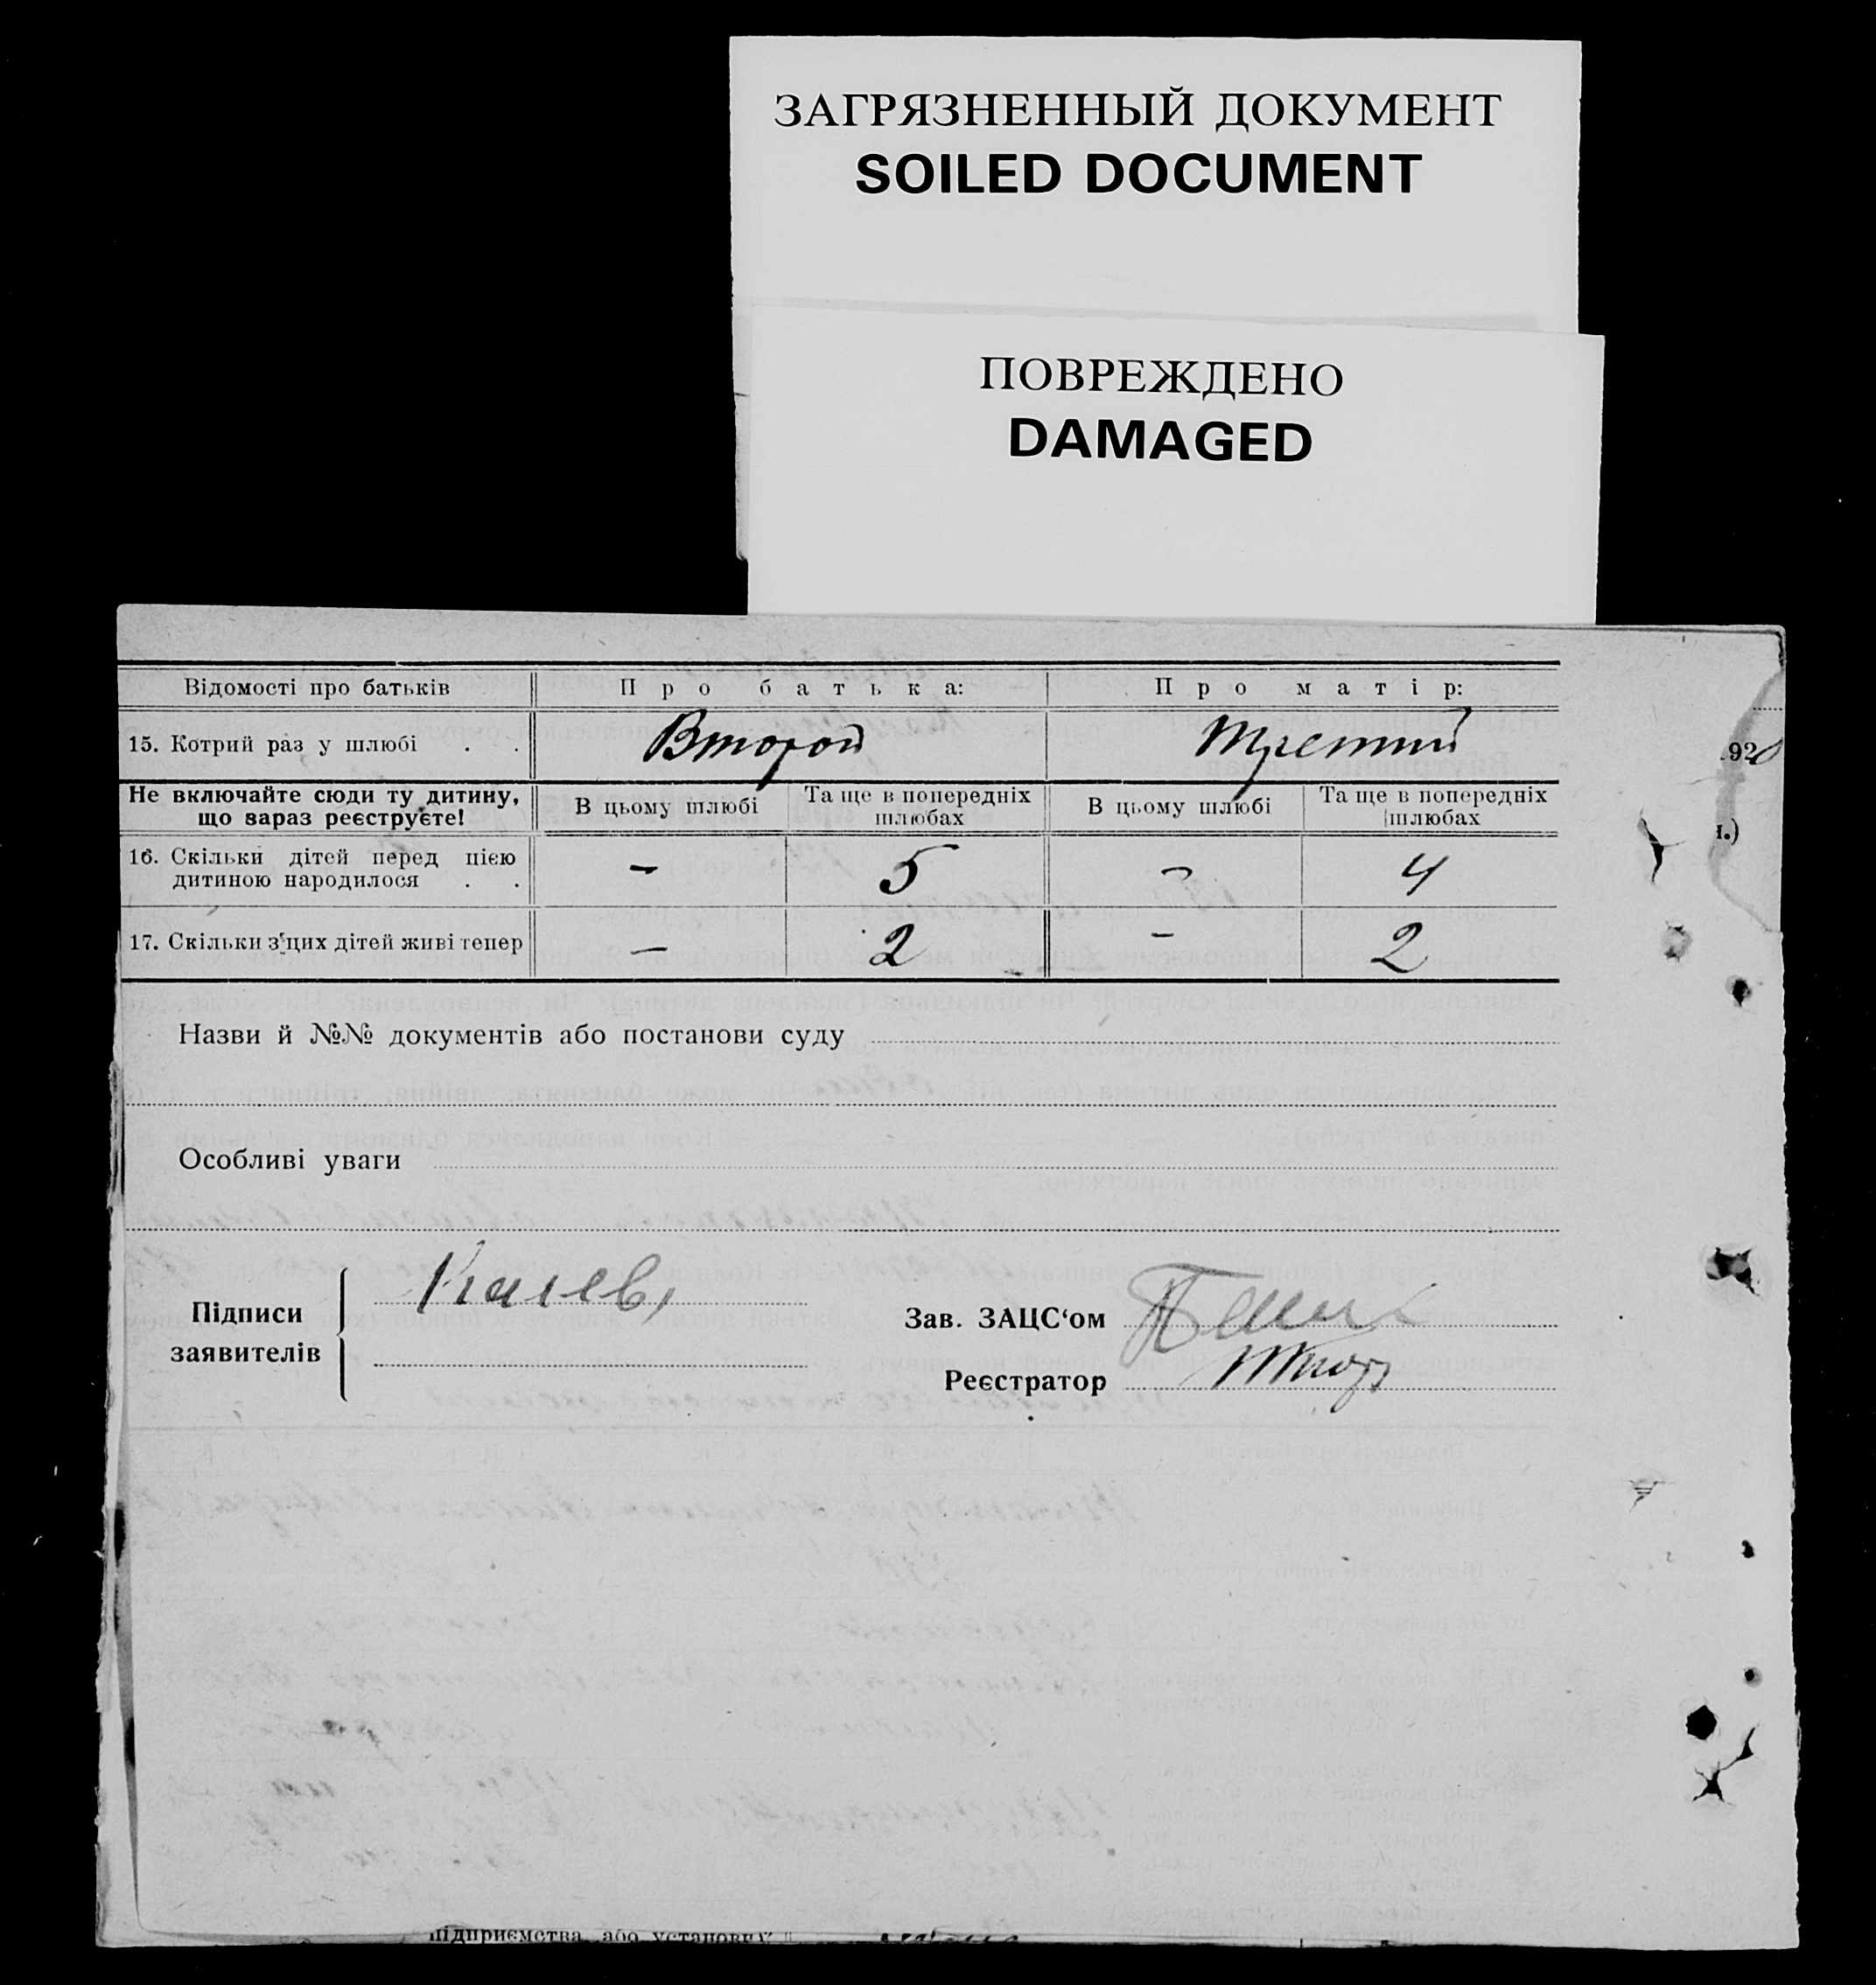 ЗАГРЯЗНЕННЫЙ ДОКУМЕНТ
SOILED DOCUMENT
ПОВРЕЖДЕНО
DAMAGED
Відомості про батьків Про батька: Про матір:
15. Котрий раз у шлюбі . . Второй Третий
920
Не включайте сюди ту дитину, що зараз реєструєте! В цьому шлюбі Та ще в попередніх шлюбах В цьому шлюбі Та ще в попередніх шлюбах
16. Скільки дітей перед цією дитиною народилося . . — 5 — 4
17. Скільки з цих дітей живі тепер — 2 — 2
Назви й №№ документів або постанови суду
Особливі уваги
Підписи заявителів
Зав. ЗАЦС‘ом
Реєстратор
підприємства або установи